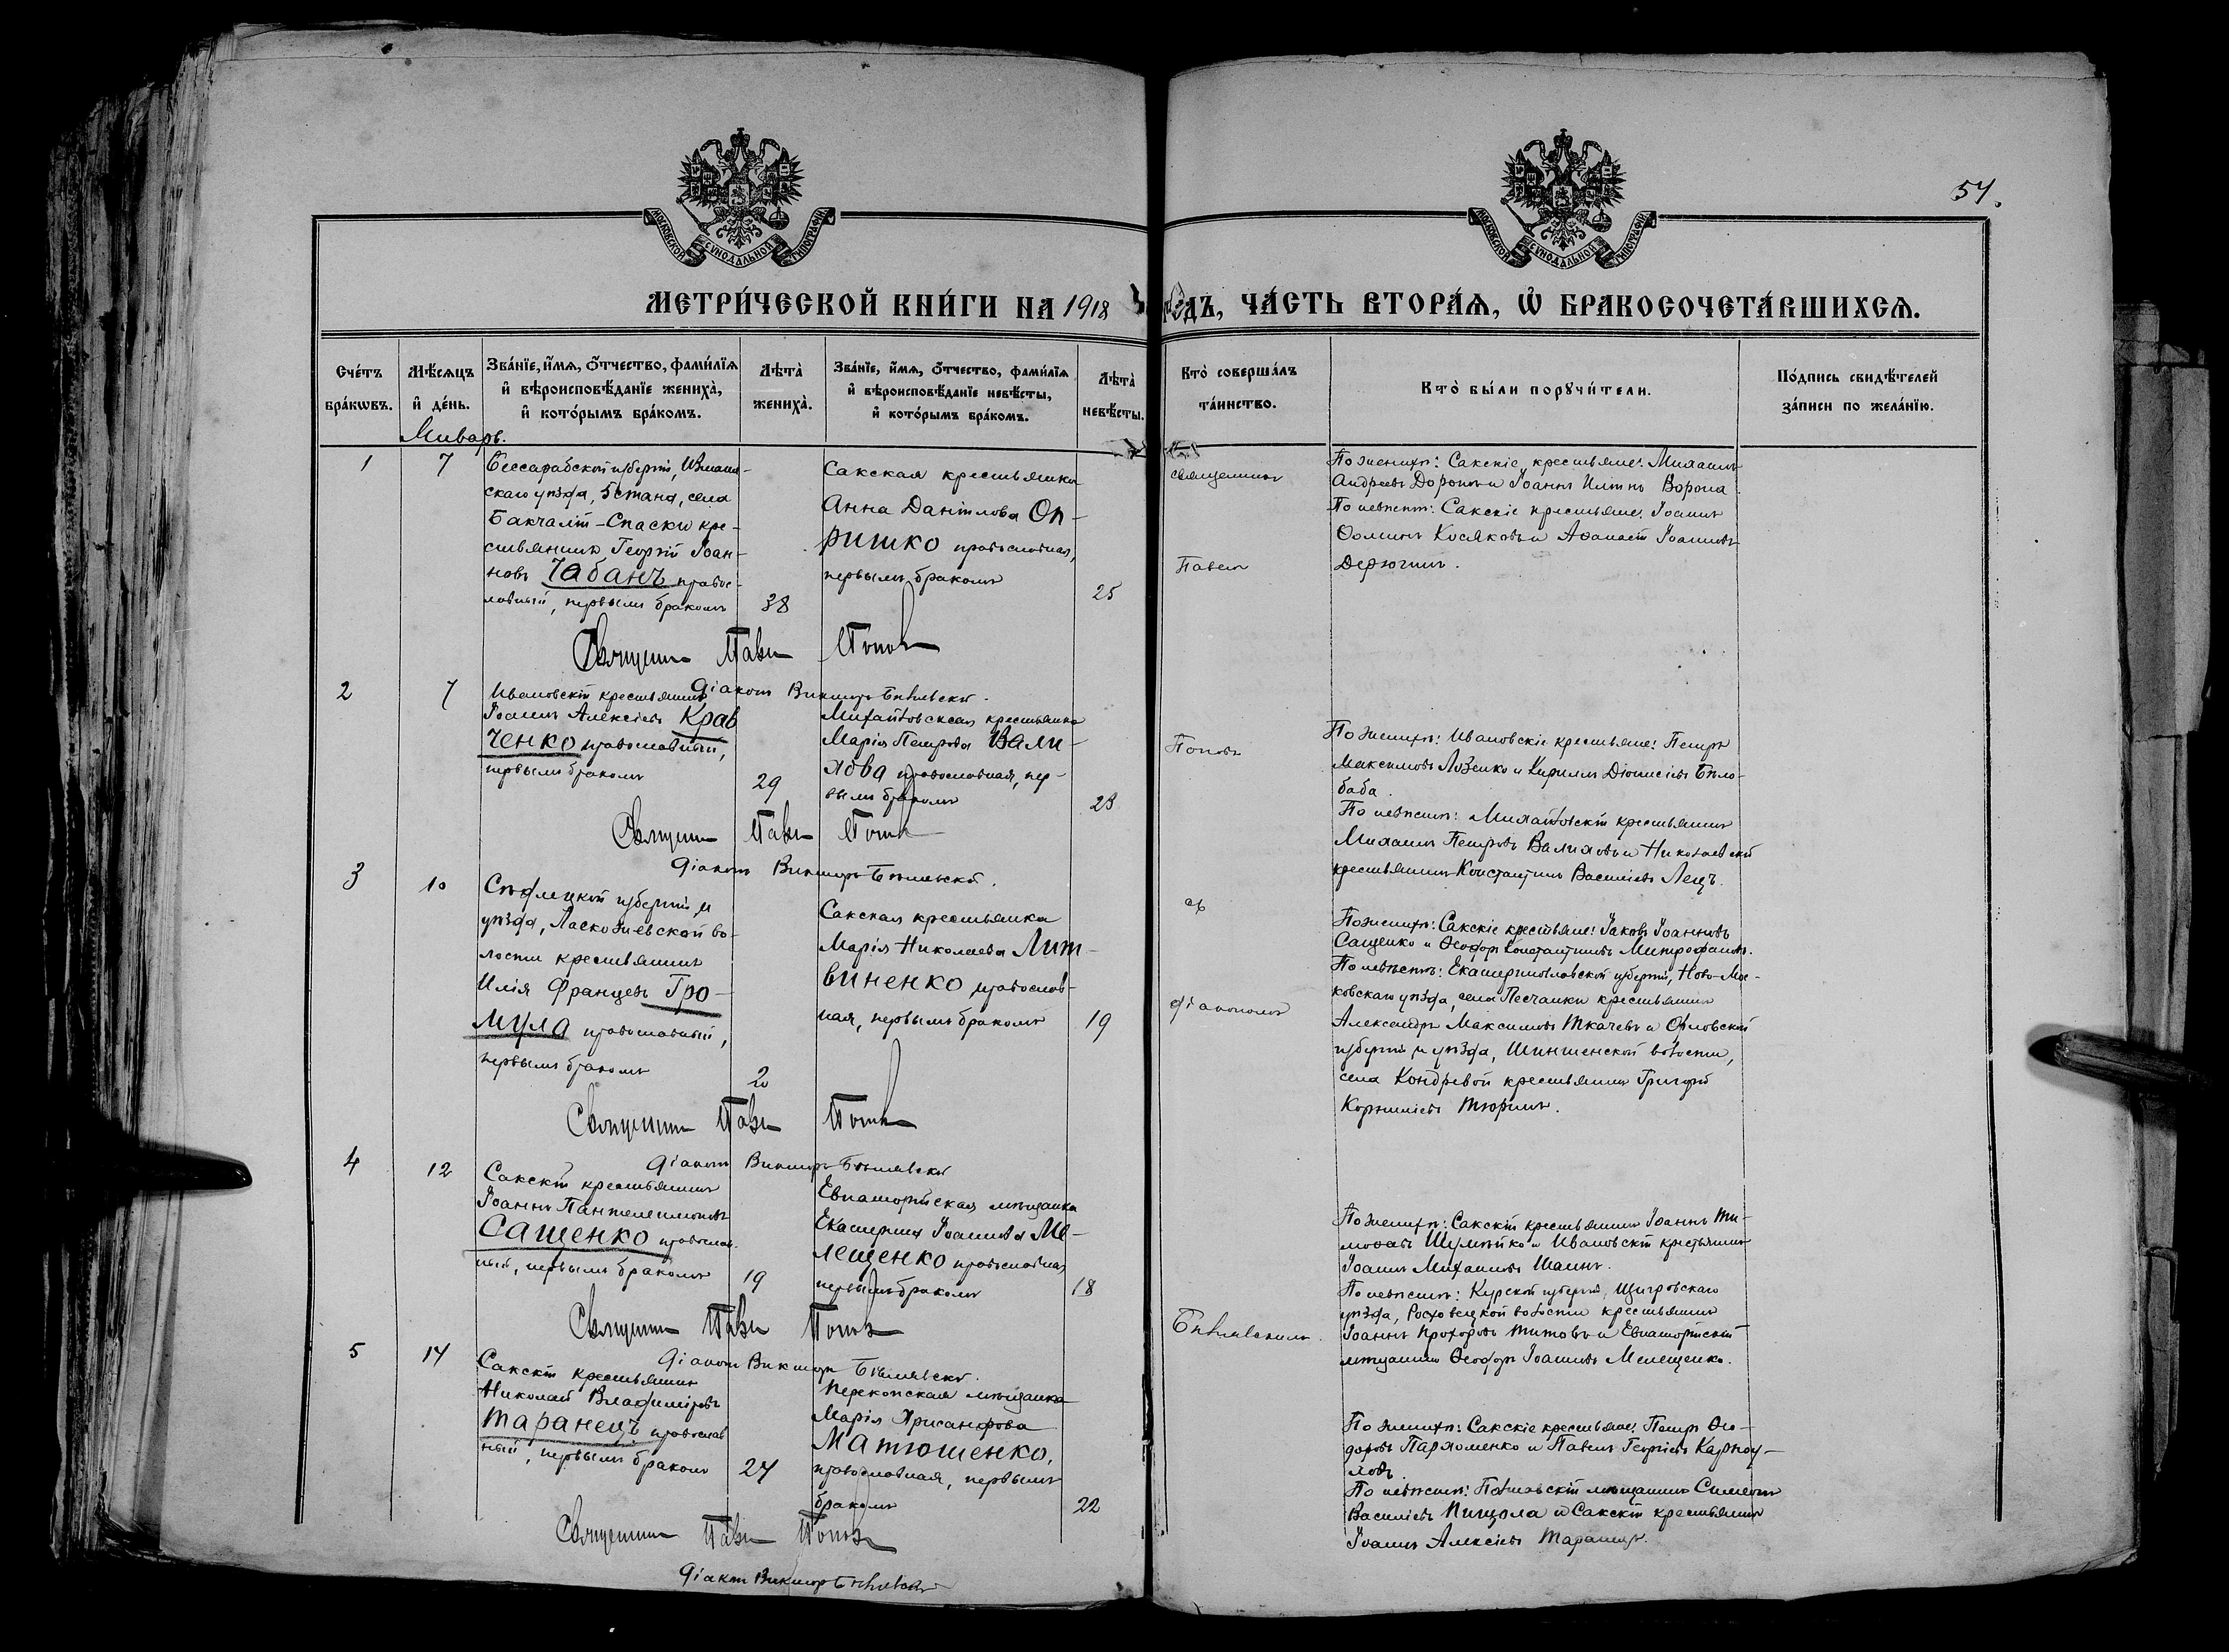 54.
МОСКОВСКОЙ СѴНОДАЛЬНОЙ ТИПОГРАФІИ
МОСКОВСКОЙ СѴНОДАЛЬНОЙ ТИПОГРАФІИ
МЕТРИ́ЧЕСКОЙ КНИ́ГИ НА 1918 ГОДЪ, ЧА́СТЬ ВТОРА́Ѧ, Ѡ БРАКОСОЧЕТА́ВШИХСѦ.
Сче́тъ бра́кѡвъ.
Мѣ́сѧцъ и де́нь.
Зва́нїе, и́мѧ, о́тчество, фами́лїѧ
и вѣроисповѣ́данїе жениха̀,
и кото́рымъ бра́комъ.
Лѣта̀ жениха̀.
Зва́нїе, и́мѧ, о́тчество, фами́лїѧ
и вѣроисповѣ́данїе невѣ́сты,
и кото́рымъ бра́комъ.
Лѣта̀ невѣ́сты.
Кто̀ соверша́лъ
та́инство.
Кто̀ бы́ли порꙋчи́тели.
По́дпись свидѣ́телей
за́писи по жела́нїю.
Январь.
1
7
Бессарабской губерніи, Измаил-
скаго уѣзда, 5 стана, села
Бакчалія-Спаски кре-
стьянинъ Георгій Іоан-
новъ Чабанъ правос-
лавный, первымъ бракомъ
38
Сакская крестьянка
Анна Данілова Оп-
ришко православная,
первымъ бракомъ
25
Священникъ
Павелъ
По женихѣ: Сакскіе крестьяне: Михаилъ
Андреевъ Доронинъ и Іоаннъ Ильинъ Ворона.
По невѣстѣ: Сакскіе крестьяне: Іоаннъ
Ѳоминъ Косяковъ и Аѳанасій Іоанновъ
Дерюгинъ.
Священникъ Павелъ Поповъ
Діаконъ Викторъ Бѣлявскій.
2
7
Ивановскій крестьянинъ
Іоаннъ Алексіевъ Крав
ченко православный,
первымъ бракомъ
29
Михайловская крестьянка
Марія Петрова Вали-
хова православная, пер-
вымъ бракомъ
23
Поповъ
По женихѣ: Ивановскіе крестьяне: Петръ
Максимовъ Лозенко и Кириллъ Діонисіевъ Бѣло-
баба.
По невѣстѣ: Михайловскій крестьянинъ
Михаилъ Петровъ Валиховъ и Николаевскій
крестьянинъ Константинъ Василіевъ Лещъ.
Священникъ Павелъ Поповъ
Діаконъ Викторъ Бѣлявскій.
3
10
Сѣдлецкой губерніи и
уѣзда, волости крестьянинъ
Илія Францевъ Гро-
мула православный,
первымъ бракомъ
20
Сакская крестьянка
Марія Николаева Лит-
виненко православ-
ная, первымъ бракомъ
19
съ
діакономъ
По женихѣ: Сакскіе крестьяне: Іаковъ Іоанновъ
Сащенко и Ѳеодоръ Константиновъ Митрофановъ.
По невѣстѣ: Екатеринославской губерніи, Ново-Мос-
ковскаго уѣзда, села Песчанки крестьянинъ
Александръ Максимовъ Ткачевъ и Орловской
губерніи и уѣзда, волости,
села Кондревой крестьянинъ Григорій
Корниліевъ Тюринъ.
Священникъ Павелъ Поповъ
Діаконъ Викторъ Бѣлявскій
4
12
Сакскій крестьянинъ
Іоаннъ Пантелеимоновъ
Сащенко православ-
ный, первымъ бракомъ
19
Евпаторійская мѣщанка
Екатерина Іоаннова Ме-
лещенко православная
первымъ бракомъ
18
Бѣлявскимъ.
По женихѣ: Сакскій крестьянинъ Іоаннъ Ти-
моѳеевъ Шулейко и Ивановскій крестьянинъ
Іоаннъ Михаиловъ Шаинъ.
По невѣстѣ: Курской губерніи, Щигровскаго
уѣзда, волости крестьянинъ
Іоаннъ Прохоровъ Титовъ и Евпаторійскій
мѣщанинъ Ѳеодоръ Іоанновъ Мелещенко.
Священникъ Павелъ Поповъ
Діаконъ Викторъ Бѣлявскій.
5
14
Сакскій крестьянинъ
Николай Владиміровъ
Таранецъ православ
ный, первымъ бракомъ
24
Перекопская мѣщанка
Марія Хрисанфова
Матюшенко,
православная, первымъ
бракомъ
22
По женихѣ: Сакскіе крестьяне: Петръ Ѳео-
доровъ Пархоменко и Павелъ Георгіевъ Карпоу-
ховъ.
По невѣстѣ: мѣщанинъ Симеонъ
Василіевъ Пищола и Сакскій крестьянинъ
Іоаннъ Алексіевъ Таранецъ.
Священникъ Павелъ Поповъ
Діаконъ Викторъ Бѣлявскій